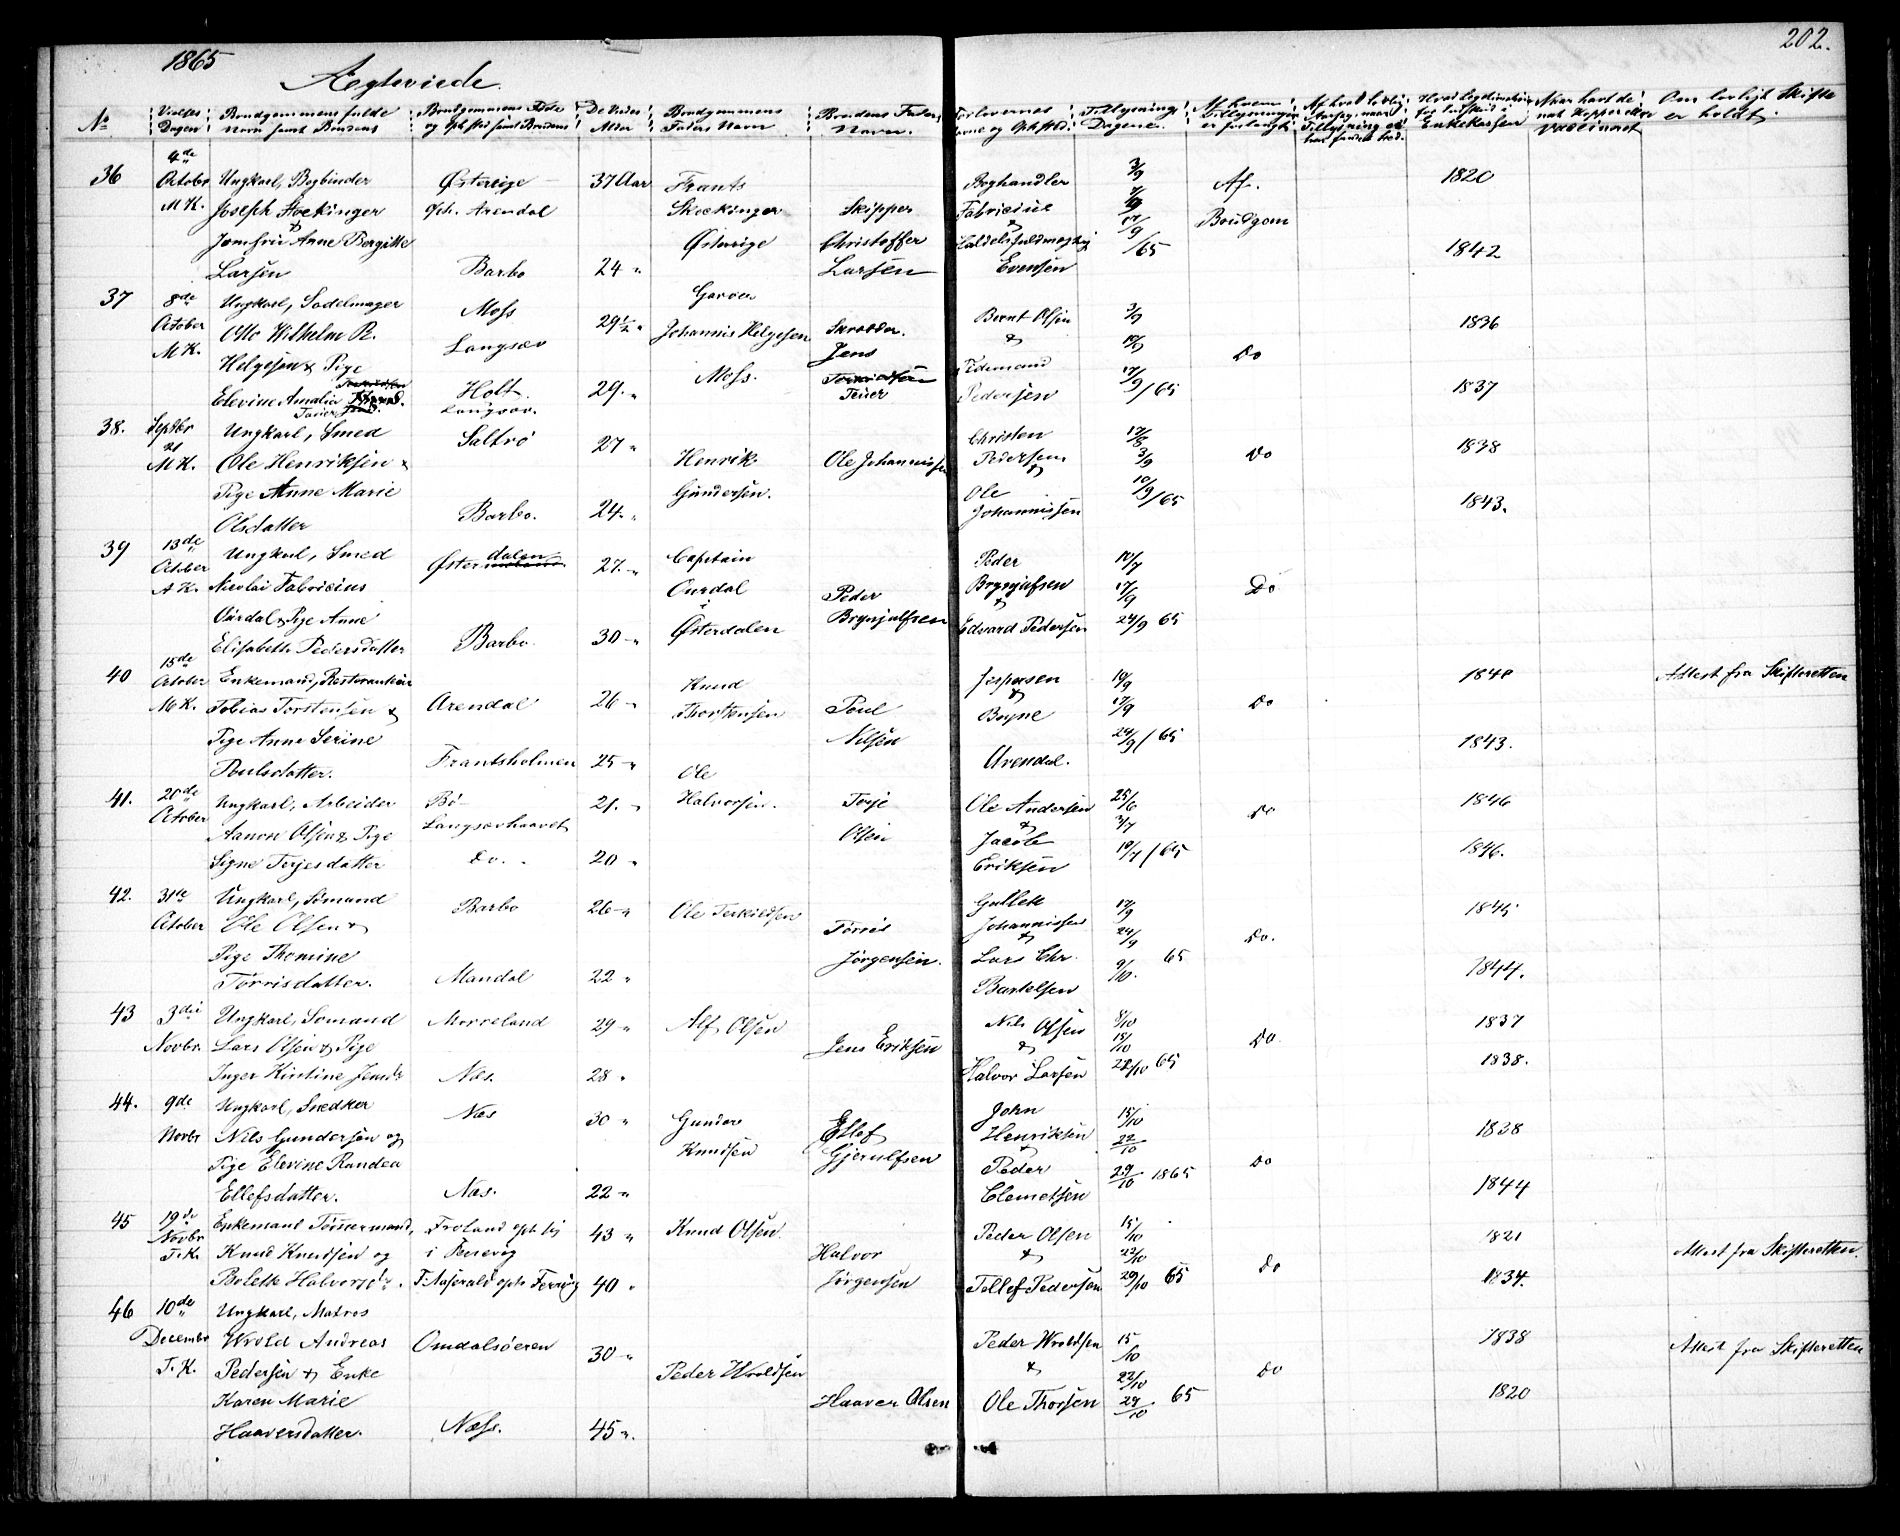 1865
202.
Ægteviede.
No
Vielses Dagen
Brudgommens fulde Navn samt Brudens
Brudgommens Føde og Oph. sted samt Brudens
De Viedes Alder
Brudgommens Faders Navn
Brudens Faders Navn.
Forlovernes Navne og Oph. sted.
Tillysnings Dagene.
Af hvem Tillysningen er forlangt
Naar havt de nat. Kopper eller vaccineret
Om lovligt Skifte er holdt.
36
4de October M.K.
Ungkarl, Bogbinder
Joseph Stockinger
&
Jomfru Anne Bergitte
Larsen
Østerige
Oph. Arendal
Barbo
37 Aar
24 "
Frants
Stockinger
Østerige
Skipper
Christoffer
Larsen
Boghandler
Fabricius
&
Evensen
3/9
17/9
/65
Af.
Brudgom
1820
1842
37
8de October M.K.
Ungkarl, Sadelmager
Otto Wilhelm R.
Helgesen & Pige
Elevine Amalia
Moss
Langsæv
Holt
Langsæv.
29½ "
29. "
Garver
Johannis Helgesen
Moss.
Skrædder.
Jens
Bernt Olsen
&
Pedersen
3/9
10/9
17/9 /65
Do
1836
1837
38.
Septbr 21 M.K.
Ungkarl, Smed
Ole Henriksen &
Pige Anne Marie
Olsdatter
Saltrø
Barbo.
27 "
24. "
Henrik
Gundersen.
Ole Johannissen
Christen
Pedersen
&
Ole
Johannissen
17/8
3/9
10/9 /65
Do
1838
1843.
39
13de October A.K.
Ungkarl, Smed
Nicolai Fabricius
Ourdal & Pige Anne
Elisabeth Pedersdatter
Østerdalen
Barbo.
27. "
30 "
Capitain
Ourdal
Østerdalen
Peder
Brynjulfsen
Peder
Brynjulfsen
&
Edvard Pedersen
10/7
17/9
24/9 65
Do
40
15de October M.K.
Enkemand, Restauratør
Tobias Torstensen &
Pige Anne Serine
Poulsdatter.
Arendal
Frantsholmen
26 "
25 "
Knud
Thorstensen
Poul
Nilsen
Jespersen
&
Boyne
Arendal.
10/9
17/9
24/9 /65
Do
1840
1843.
Attest fra Skifteretten
41.
20de October
Ungkarl, Arbeider
Aanon Olsen & Pige
Signe Terjesdatter
Bö
Langsævhaavet
Do.
21. "
20 "
Ole
Halvorsen.
Terje
Olsen
Ole Andersen
&
Jacob
Eriksen
25/6
3/7
10/7 /65
Do
1846
1846.
42.
31te October
Ungkarl, Sömand
Ole Olsen &
Pige Thomine
Torrisdatter.
Barbo
Mandal
26 "
22 "
Ole Terkildsen
Törris
Jörgensen.
Gullek
Johannissen
&
Lars Chr.
Bartelsen
17/9
24/9
9/10. 65
Do.
1845
1844.
43
3die Novbr.
Ungkarl, Somand
Lars Olsen & Pige
Inger Kirstine Jensdr
Morreland
Næs.
29 "
28 "
Alf Olsen
Jens Eriksen
Nils Olsen
&
Halvor Larsen
8/10
15/10
22/10 65
Do
1837
1838.
44.
9de Novbr
Ungkarl, Snedker
Nils Gundersen og
Pige Elevine Randea
Ellefsdatter.
Næs
Næs.
30 "
22 "
Gunder
Knudsen
Ellef
Gjerulfsen
John
Henriksen
&
Peder
Clemetsen
15/10
22/10
29/10 1865
Do
1838
1844
45
19de Novbr T.K.
Enkemand Tömmermand,
Knud Knudsen og
Bolette Halvorsdr.
Froland oph. sig
43 "
40 "
Knud Olsen
Halvor
Jörgensen
Peder Olsen
&
Tellef Pedersen
15/10
22/10
29/10 65
Do
1821
1834.
Attest fra Skifteretten.
46
10de Decembr T.K.
Ungkarl, Matros
Wrold Andreas
Pedersen & Enke
Karen Marie
Haaversdatter.
Omdalsøeren
Næss.
30 "
45 ".
Peder Wroldsen
Haaver Olsen
Peder Wroldsen
&
Ole Thorsen
15/10
22/10
29/10 65
Do
1838
1820
Attest fra Skifteretten